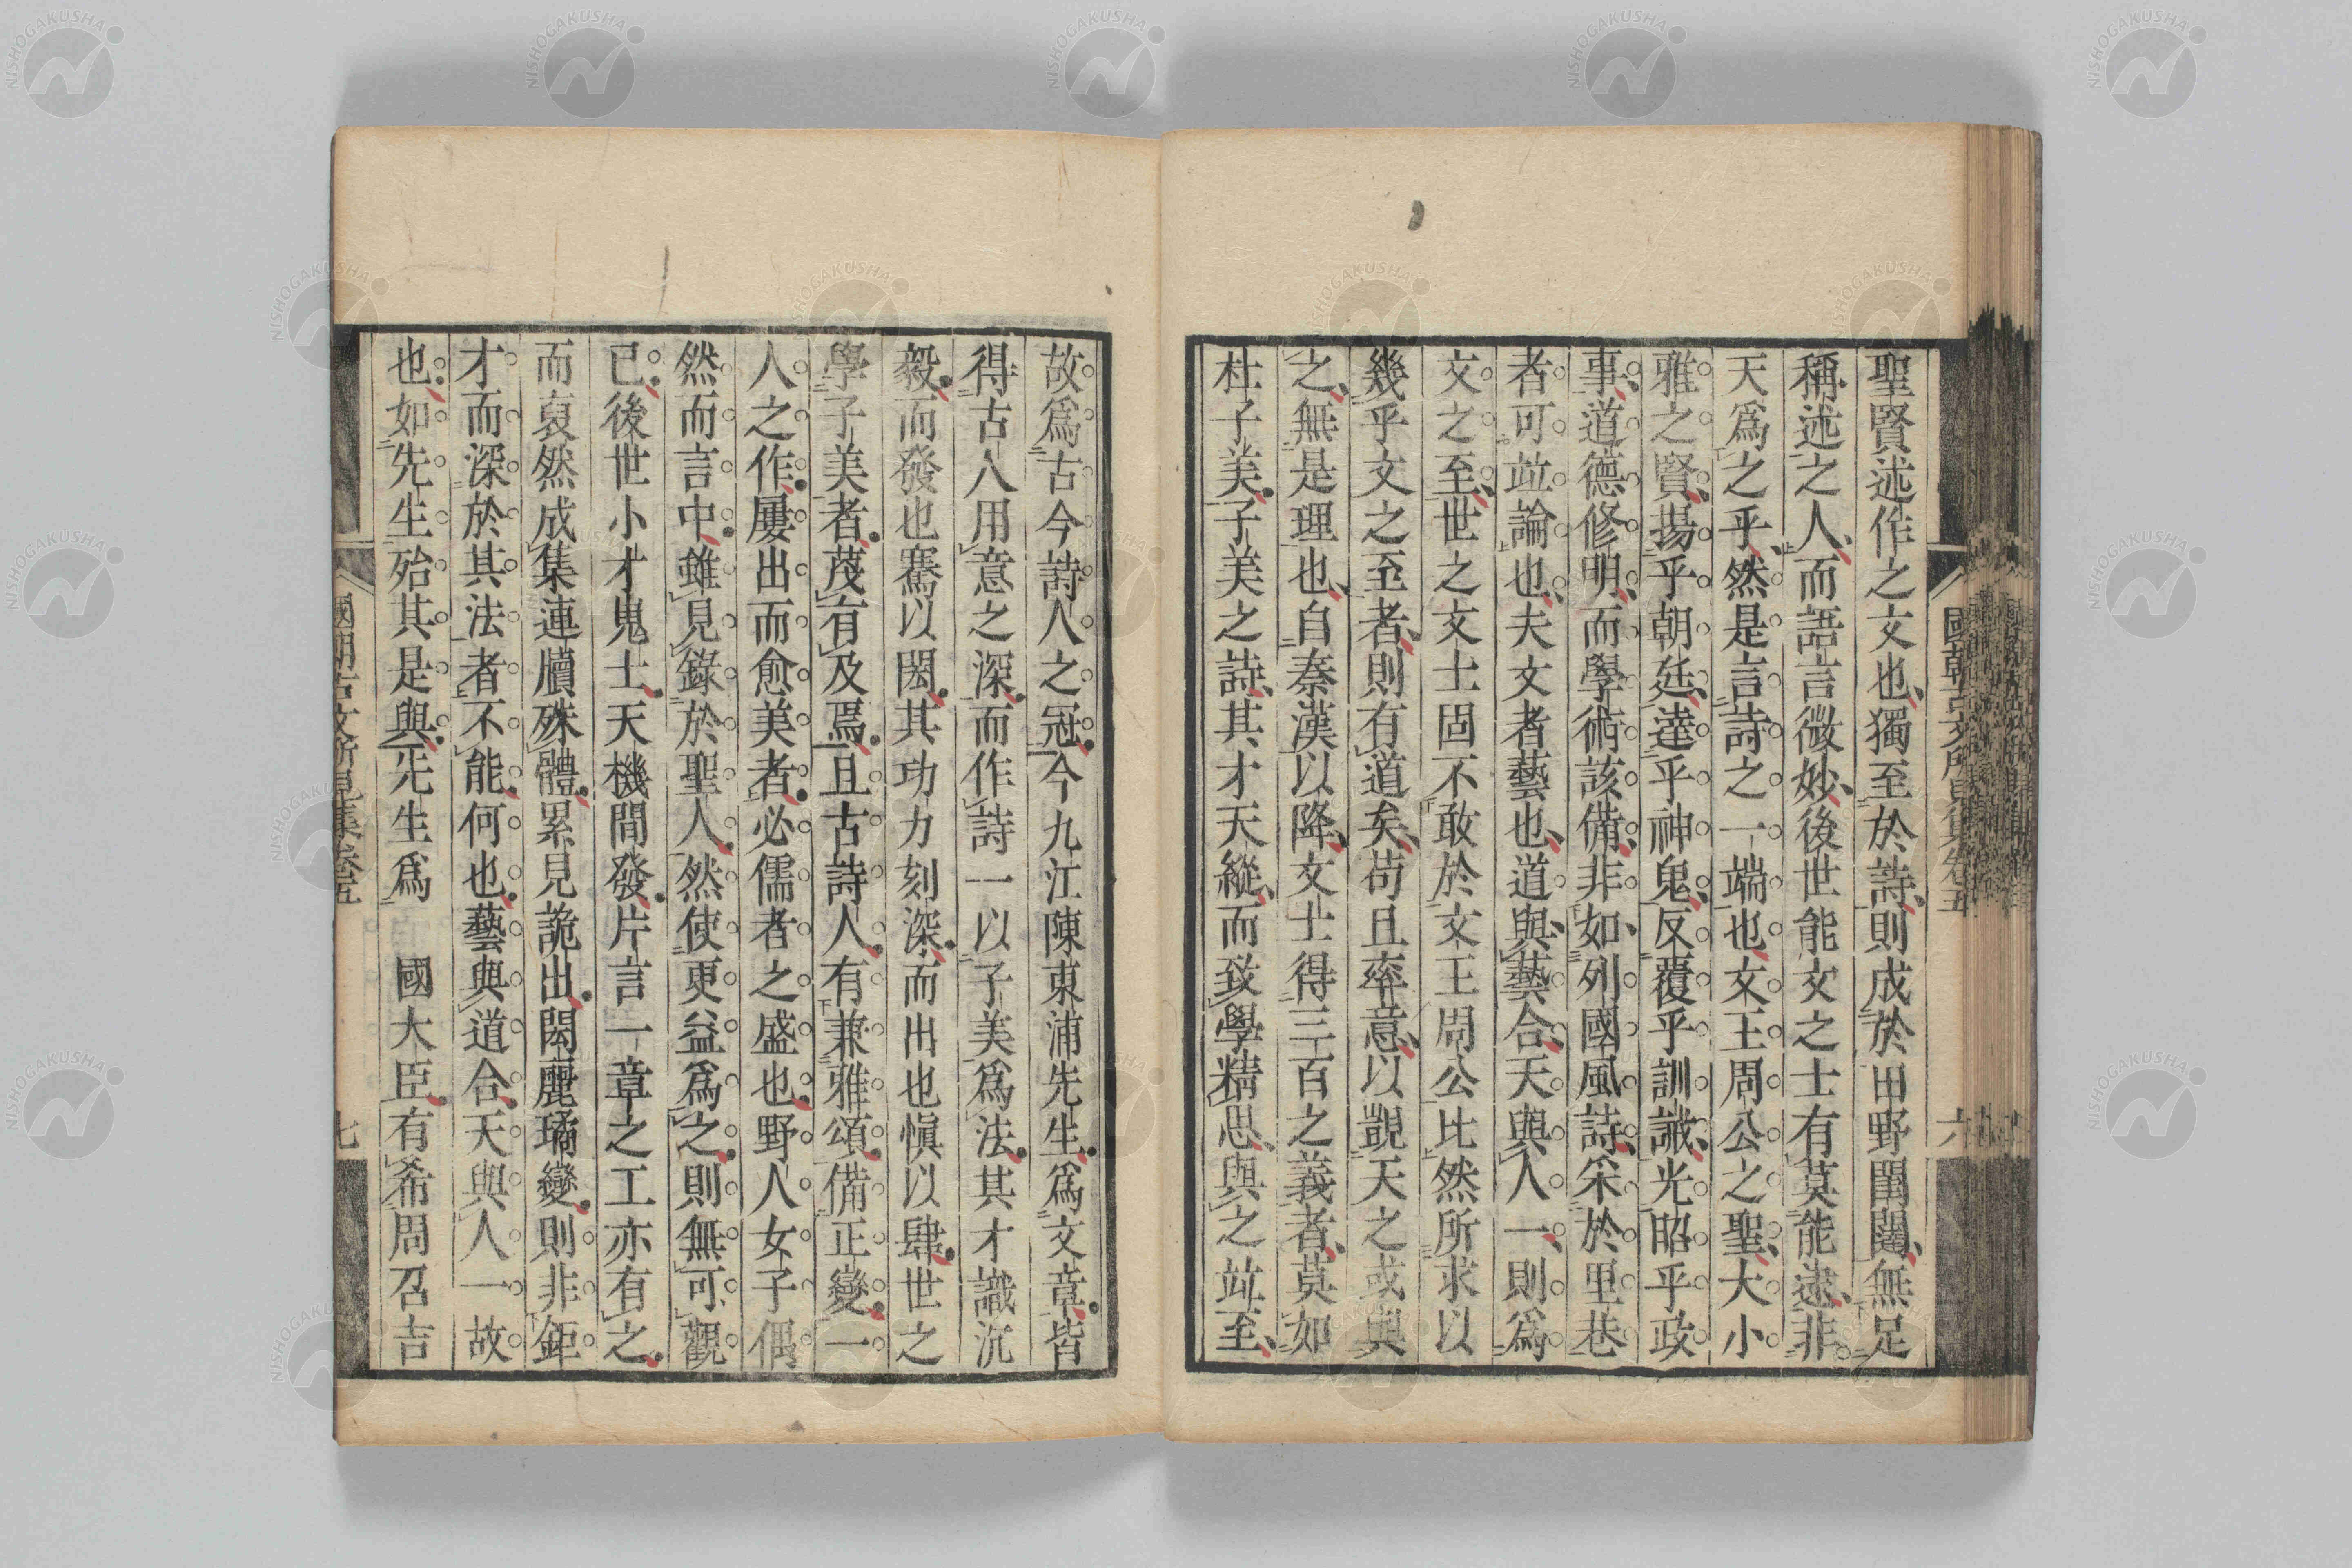 聖賢述作之文也獨至於詩則成於田野閨闥無足
稱述之人而語言微妙後世能文之士有莫能逮非
天爲之乎然是言詩之一端也文王周公之聖大小
雅之賢揚乎朝廷達乎神鬼反覆乎訓誡光昭乎政
事道德修明而學術該備非如列國風詩采於里巷
者可竝論也夫文者藝也道與藝合天與人一則爲
文之至世之文士固不敢於文王周公比然所求以
幾乎文之至者則有道矣苟且率意以覬天之或與
之無是理也自秦漢以降文士得三百之義者莫如
杜子美子美之詩其才天縱而致學精思與之竝至
國朝古文所見集卷五
六
故爲古今詩人之冠今九江陳東浦先生爲文章皆
得古人用意之深而作詩一以子美爲法其才識沉
毅而發也騫以閎其功力刻深而出也愼以肆世之
學子美者蔑有及焉且古詩人有兼雅頌備正變一
人之作屢出而愈美者必儒者之盛也野人女子偶
然而言中雖見錄於聖人然使更益爲之則無可觀
已後世小才嵬士天機間發片言一章之工亦有之
而裒然成集連牘殊體累見詭出閎麗璚變則非鉅
才而深於其法者不能何也藝與道合天與人一故
也如先生殆其是與先生爲 國大臣有希周召吉
國朝古文所見集卷五
七
NISHOGAKUSHA